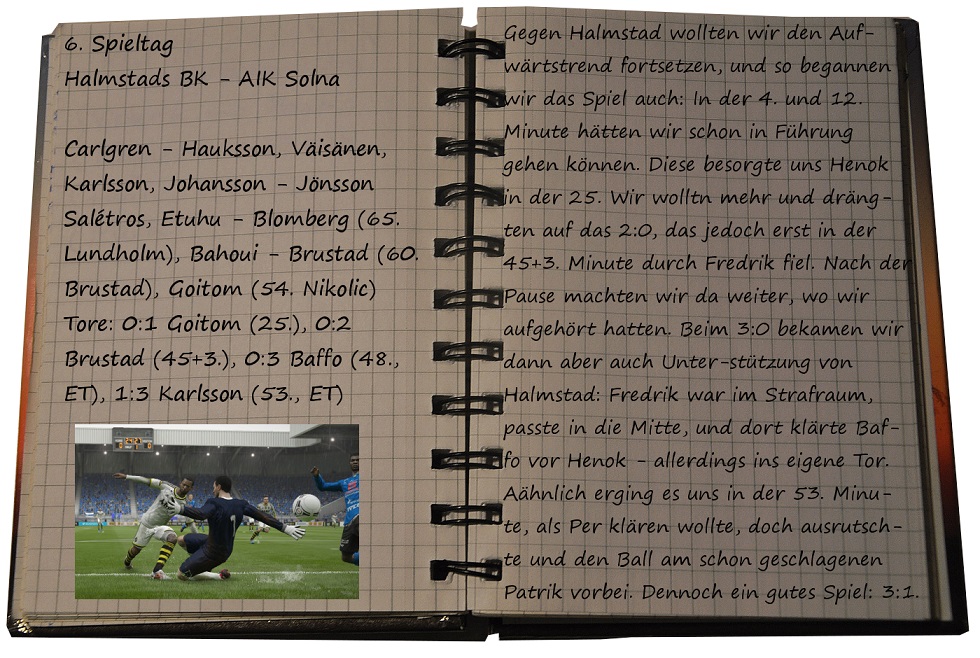 6. Spieltag
Halmstads BK - AIK Solna
Carlgren - Hauksson, Väisänen,
Karlsson, Johansson - Jönsson
Salétros, Etuhu - Blomberg (65.
Lundholm), Bahoui - Brustad (60.
Brustad), Goitom (54. Nikolic)
Tore: 0:1 Goitom (25.), 0:2
Brustad (45+3.), 0:3 Baffo (48.,
ET), 1:3 Karlsson (53., ET)
1
Gegen Halmstad wollten wir den Auf-
wärtstrend fortsetzen, und so begannen
wir das Spiel auch: In der 4. und 12.
Minute hätten wir schon in Führung
gehen können. Diese besorgte uns Henok
in der 25. Wir wolltn mehr und dräng-
ten auf das 2:0, das jedoch erst in der
45+3. Minute durch Fredrik fiel. Nach der
Pause machten wir da weiter, wo wir
aufgehört hatten. Beim 3:0 bekamen wir
dann aber auch Unter-stützung von
Halmstad: Fredrik war im Strafraum,
passte in die Mitte, und dort klärte Baf-
fo vor Henok - allerdings ins eigene Tor.
Aähnlich erging es uns in der 53. Minu-
te, als Per klären wollte, doch ausrutsch-
te und den Ball am schon geschlagenen
Patrik vorbei. Dennoch ein gutes Spiel: 3:1.